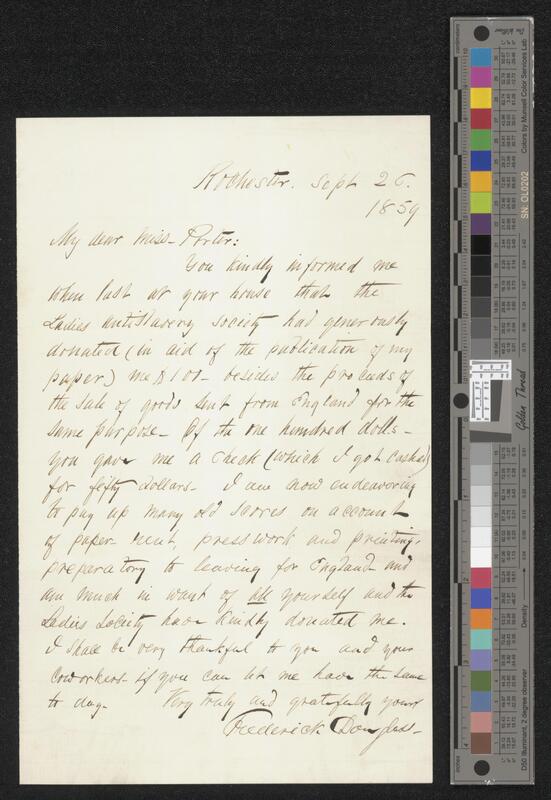 Rochester. Sept 26.
1859
My dear Miss- Porter:
You kindly informed me
when last at your house that the
Ladies antislavery society had generously
donated (in aid of the publication of my
paper) me $100- besides the proceeds of
the sale of goods sent from England for the
same purpose- Of the one hundred dolls-
you gave me a check (which I got cashed)
for fifty dollars- I am now endeavering
to pay up many old scores on account
of paper- rent, presswork and printing,
preparatory to leaving for England- and
am much in want of all yourself and the
Ladies Society have kindly donated me.
I shall be very thankful to you and your
coworkers if you can let me have the same
to day- Very truly and gratefully yours
Frederick Douglass-
Colors by Munsell Color Services Lab
SN: OL0202
Golden Thread
Density
D50 Illuminant, 2 degree observer
centimeters
inches